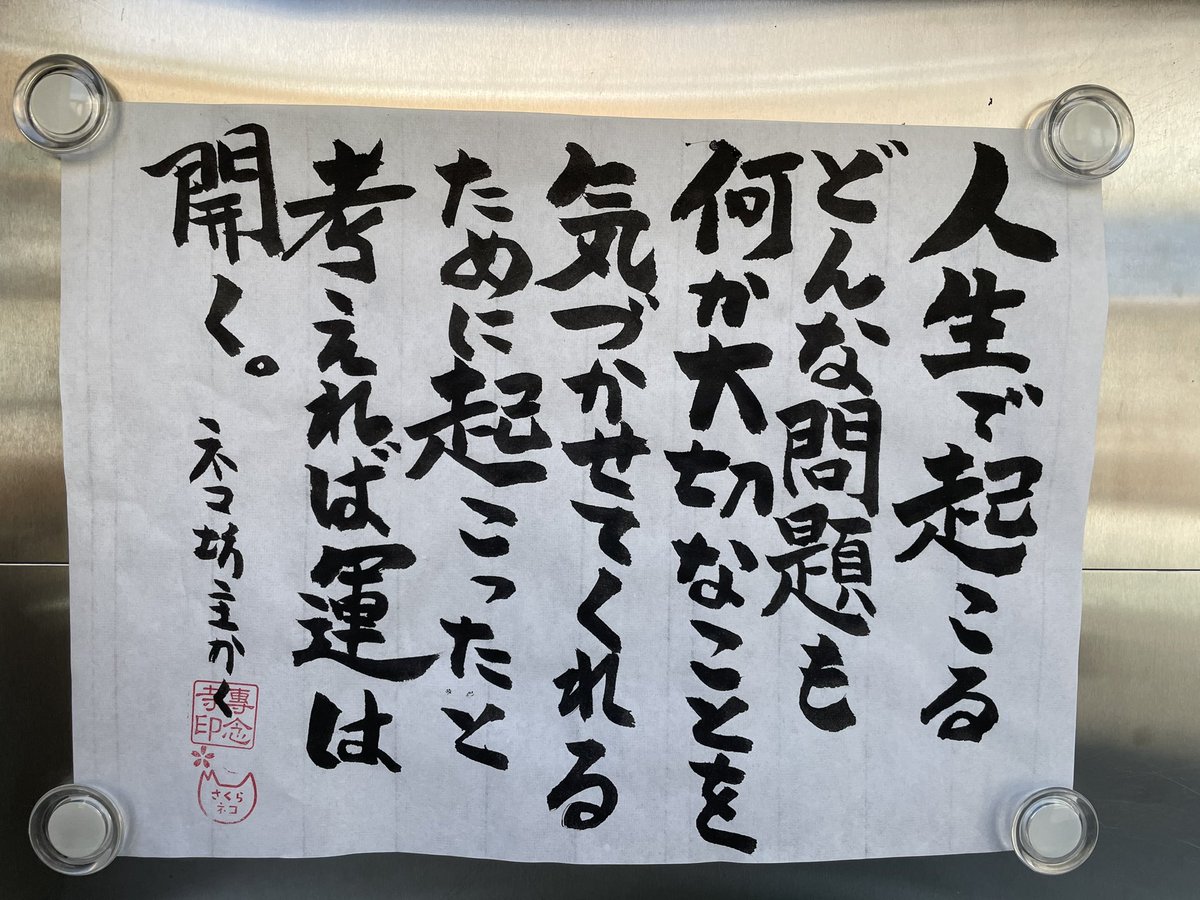 人生で起こる
どんな問題も
何か大切なことを
気づかせてくれる
ために起こったと
考えれば運は
開く。
ネコ坊主かく
專念
寺印
さくら
ネコ